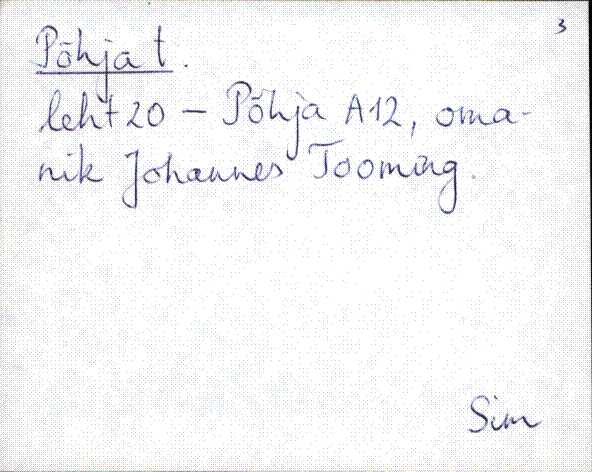 3
Põhja t.
leht 20 – Põhja A12, oma-
nik Johannes Tooming.
Sim